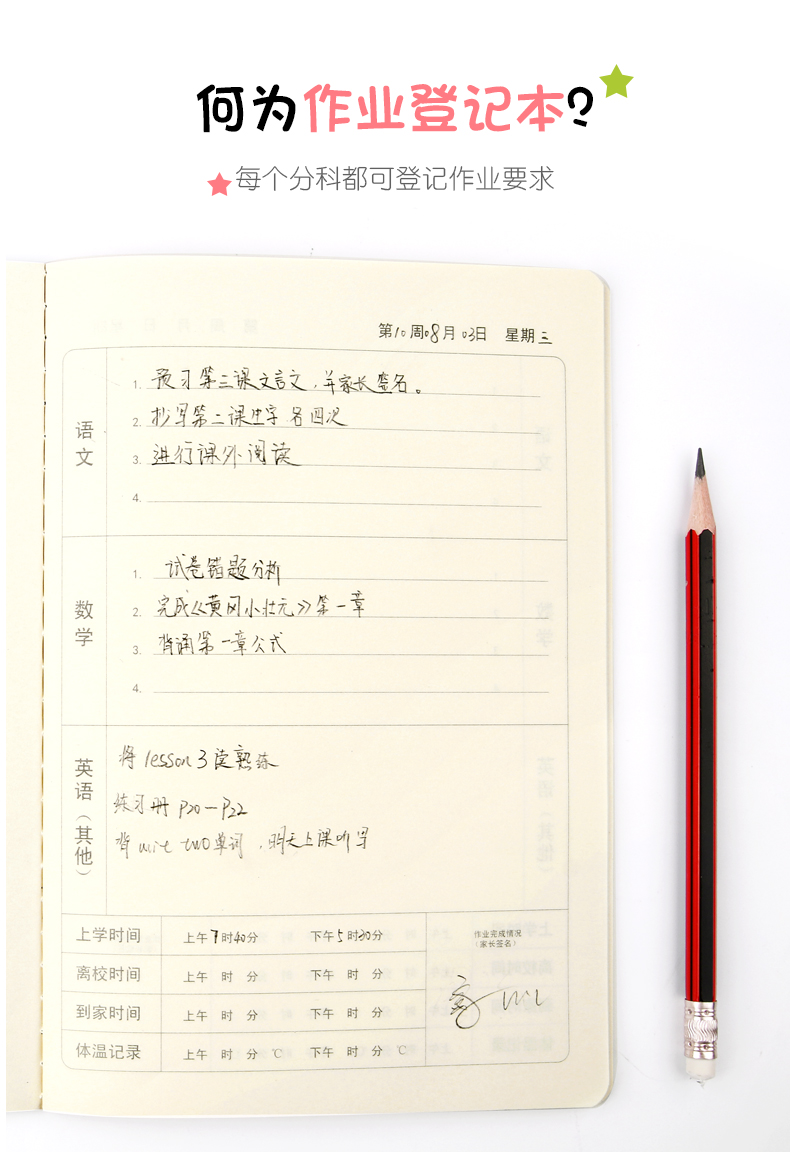 何为作业登记本?
每个分科都可登记作业要求
第10周08月03日 星期三
语文
1. 预习第三课文言文，并家长签名。
2. 抄写第二课生字各四次
3. 进行课外阅读
4.
数学
1. 试卷错题分析
2. 完成《黄冈小状元》第一章
3. 背诵第一章公式
4.
英语（其他）
将lesson 3读熟练
练习册P20—P22
背unit two单词，明天上课听写
上学时间 上午7时40分 下午5时30分
离校时间 上午 时 分 下午 时 分
到家时间 上午 时 分 下午 时 分
体温记录 上午 时 分 ℃ 下午 时 分 ℃
作业完成情况
（家长签名）